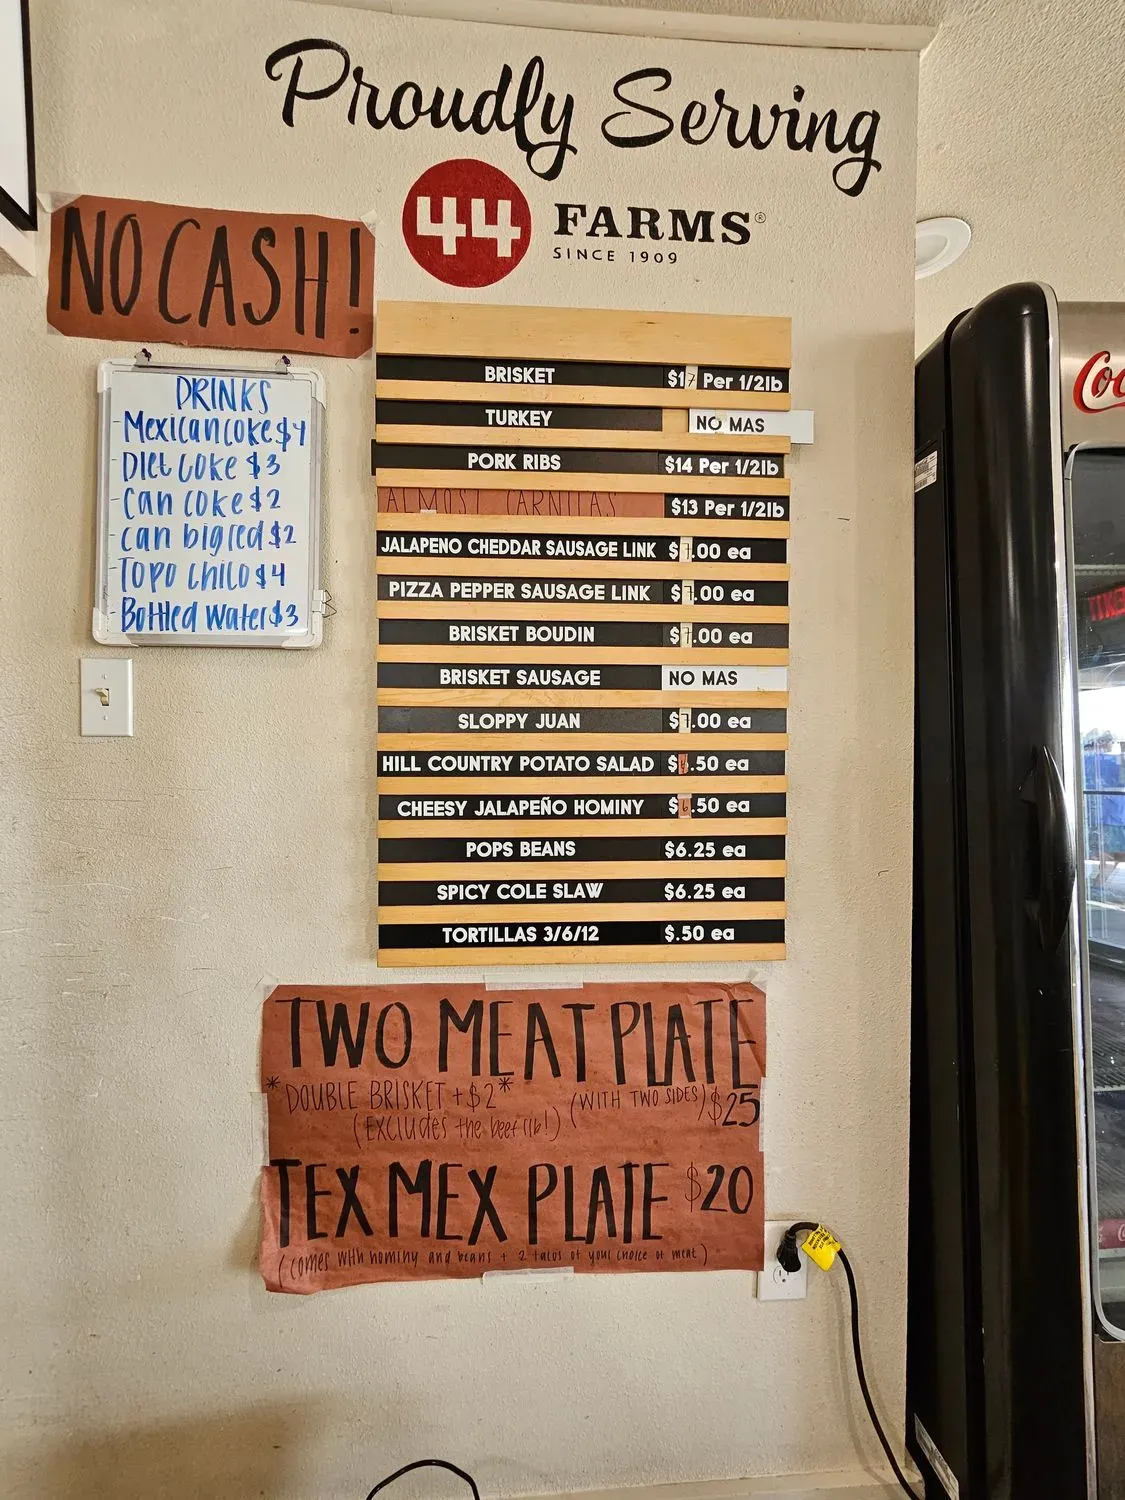 Proudly Serving
44 FARMS®
SINCE 1909
NO CASH!
DRINKS
-Mexican coke $4
-Diet coke $3
-Can coke $2
-can big red $2
-Topo chico $4
-Bottled water $3
BRISKET $17 Per 1/2lb
TURKEY NO MAS
PORK RIBS $14 Per 1/2lb
ALMOST CARNITAS $13 Per 1/2lb
JALAPENO CHEDDAR SAUSAGE LINK $7.00 ea
PIZZA PEPPER SAUSAGE LINK $7.00 ea
BRISKET BOUDIN $7.00 ea
BRISKET SAUSAGE NO MAS
SLOPPY JUAN $7.00 ea
HILL COUNTRY POTATO SALAD
CHEESY JALAPEÑO HOMINY $6.50 ea
POPS BEANS $6.25 ea
SPICY COLE SLAW $6.25 ea
TORTILLAS 3/6/12 $.50 ea
TWO MEAT PLATE
*DOUBLE BRISKET +$2* (WITH TWO SIDES) $25
(EXCLUDES the beef rib!)
TEX MEX PLATE $20
(comes with hominy and beans + 2 tacos of your choice of meat)
Coc